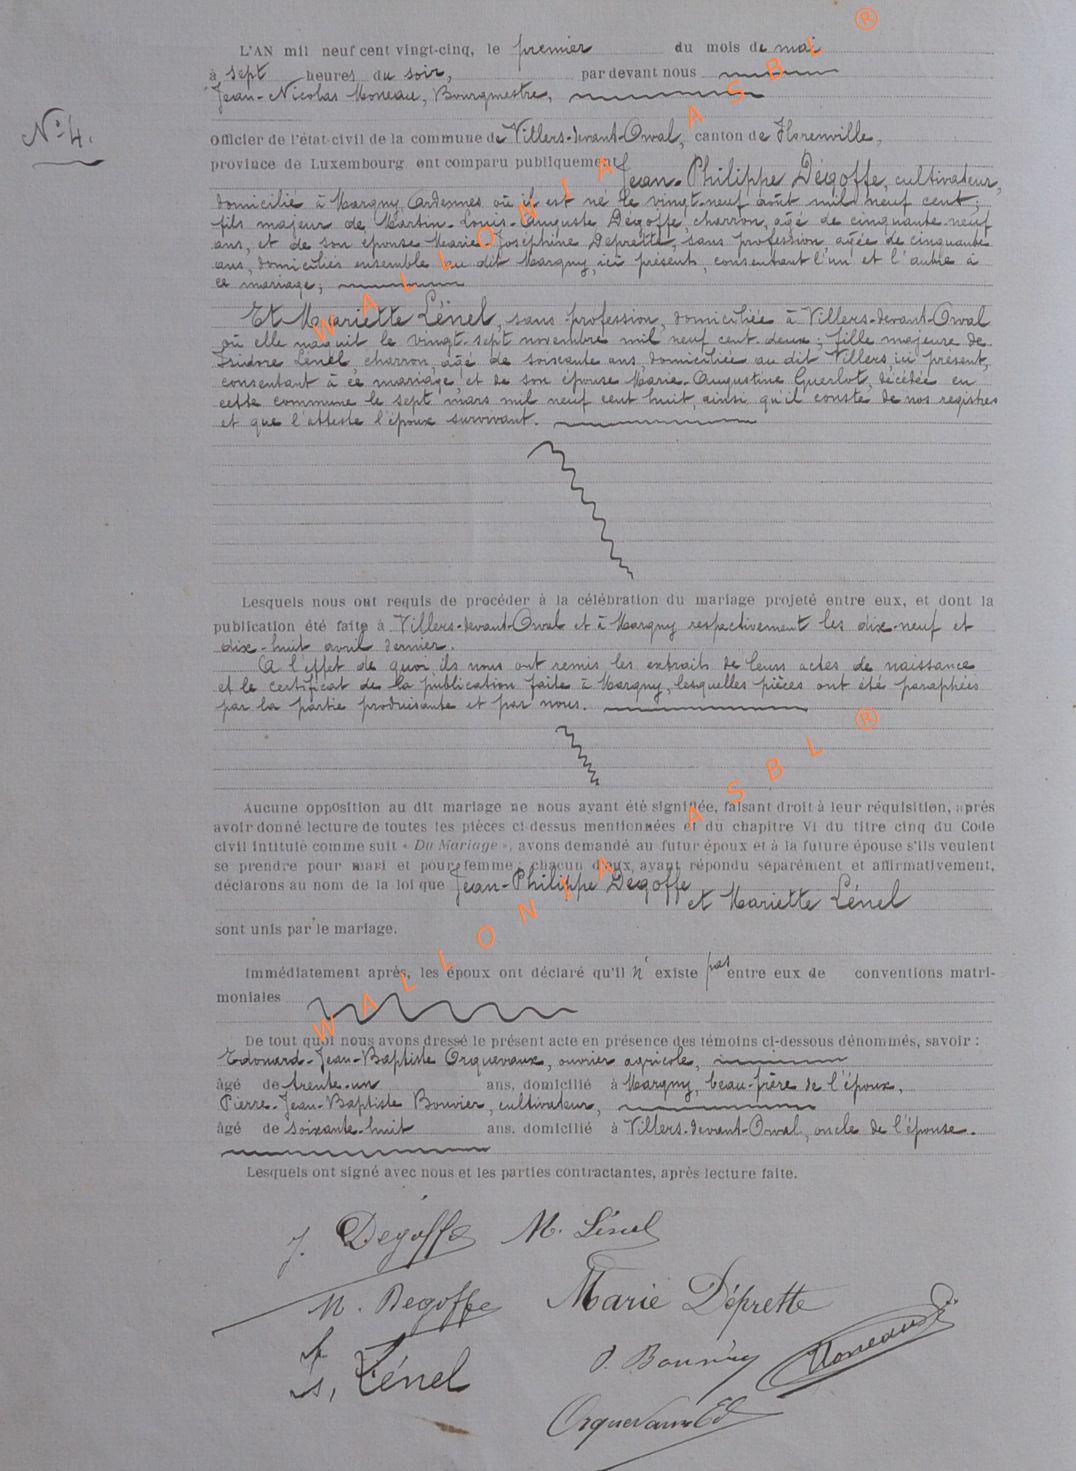 L'AN mil neuf cent vingt-cinq, le premier du mois de mai
à sept heures du soir, par devant nous
Jean-Nicolas Moneau, Bourgmestre,
N° 4.
officier de l'état-civil de la commune de Villers-devant-Orval, canton de Florenville,
province de Luxembourg ont comparu publiquement Jean-Philippe Dégoffe, cultivateur,
domicilié à Margny Ardennes où il est né le vingt-neuf août mil neuf cent ;
fils majeur de Martin-Louis-Auguste Dégoffe, charron, âgé de cinquante-neuf
ans, et de son épouse Marie Joséphine Deprette, sans profession, âgée de cinquante
ans, domiciliés ensemble au dit Margny, ici présents, consentant l'un et l'autre à
ce mariage ;
Et Mariette Lénel, sans profession, domiciliée à Villers-devant-Orval
où elle naquit le vingt-sept novembre mil neuf cent deux ; fille majeure de
Isidore Lénel, charron, âgé de soixante ans, domiciliée au dit Villers, ici présent,
consentant à ce mariage, et de son épouse Marie-Augustine Guerlot, décédée en
cette commune le sept mars mil neuf cent huit, ainsi qu'il conste de nos registres
et que l'atteste l'époux survivant.
Lesquels nous ont requis de procéder à la célébration du mariage projeté entre eux, et dont la
publication été faite à Villers-devant-Orval et à Margny respectivement les dix-neuf et
dix-huit avril dernier.
A l'effet de quoi ils nous ont remis les extraits de leurs actes de naissance
et le certificat de la publication faite à Margny, lesquelles pièces ont été paraphées
par la partie produisante et par nous.
Aucune opposition au dit mariage ne nous ayant été signifiée, faisant droit à leur réquisition, après
avoir donné lecture de toutes les pièces ci-dessus mentionnées et du chapitre VI du titre cinq du Code
civil intitulé comme suit « Du Mariage », avons demandé au futur époux et à la future épouse s'ils veulent
se prendre pour mari et pour femme ; chacun d'eux, ayant répondu séparément et affirmativement,
déclarons au nom de la loi que Jean-Philippe Degoffe
et Mariette Lénel
sont unis par le mariage.
Immédiatement après, les époux ont déclaré qu'il n'existe pas entre eux de conventions matri-
moniales
De tout quoi nous avons dressé le présent acte en présence des témoins ci-dessous dénommés, savoir :
Edouard-Jean-Baptiste Orquevaux, ouvrier agricole,
âgé de trente-un ans, domicilié à Margny, beau-frère de l'époux,
Pierre-Jean-Baptiste Bouvier, cultivateur,
âgé de soixante-huit ans, domicilié à Villers-devant-Orval, oncle de l'épouse.
Lesquels ont signé avec nous et les parties contractantes, après lecture faite.
J. Degoffe M. Lénel
M. Degoffe Marie Déprette
Is. Lénel P. Bouvier Moneau
Orquevaux Ed
WALLONIA ASBL ®
WALLONIA ASBL ®